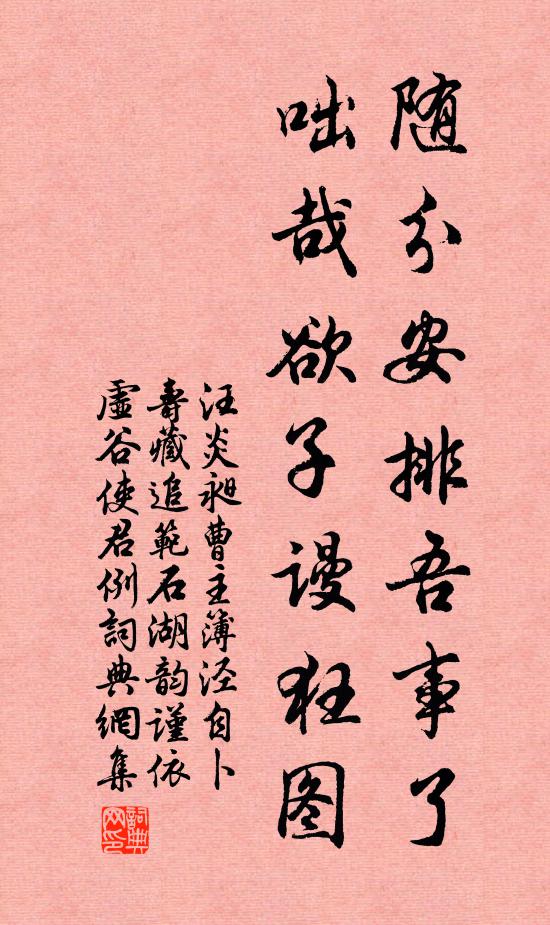 随分安排吾事了
咄哉欲子謾狂图
汪炎昶曹主簿泾自卜
壽藏追範石湖韵謹依
虚谷使君例詞典網集
詞典
网印